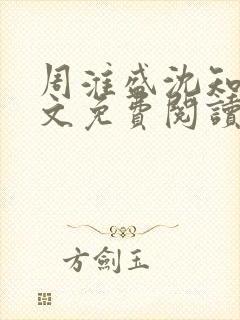 周淮盛沈知
文免費閱讀
方劍玉